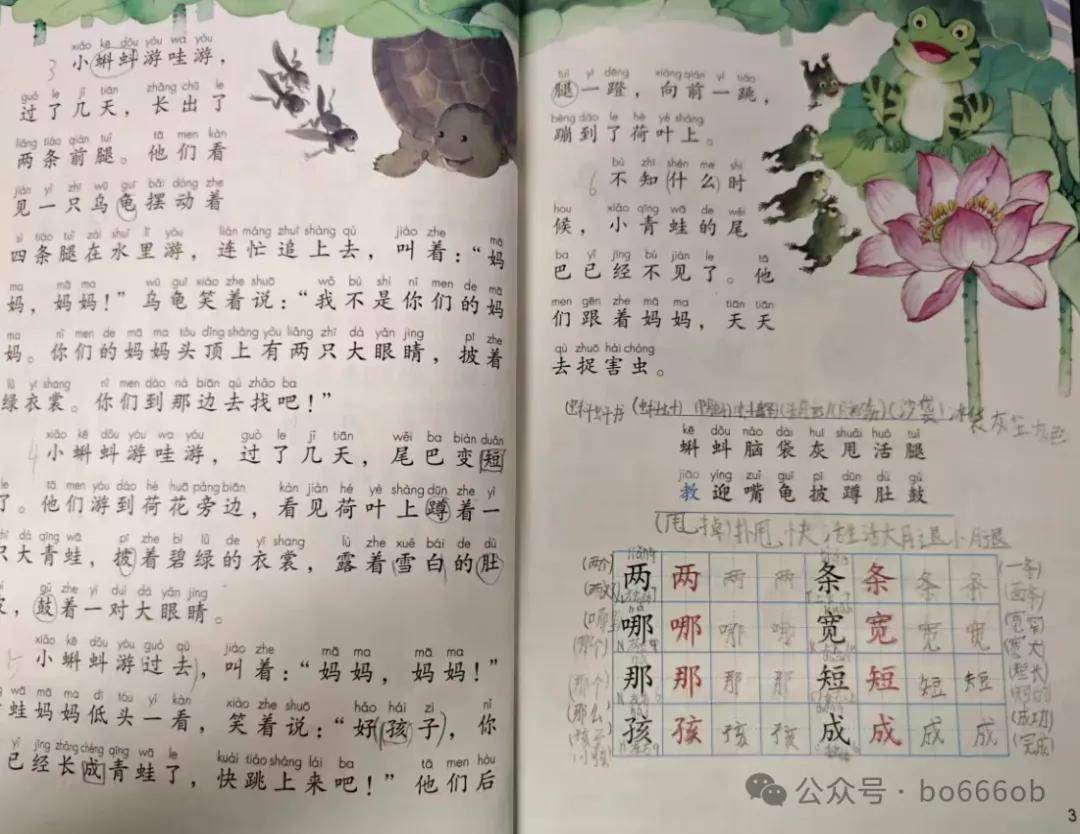 xiǎo kē dǒu yóu wa yóu
3 小蝌蚪游哇游，
guò le jǐ tiān zhǎng chū le
过了几天，长出了
liǎng tiáo qián tuǐ tā men kàn
两条前腿。他们看
jiàn yì zhī wū guī bǎi dòng zhe
见一只乌龟摆动着
sì tiáo tuǐ zài shuǐ lǐ yóu lián máng zhuī shàng qù jiào zhe mā
四条腿在水里游，连忙追上去，叫着：“妈
ma mā ma wū guī xiào zhe shuō wǒ bú shì nǐ men de mā
妈，妈妈！”乌龟笑着说：“我不是你们的妈
ma nǐ men de mā ma tóu dǐng shàng yǒu liǎng zhī dà yǎn jīng pī zhe
妈。你们的妈妈头顶上有两只大眼睛，披着
lǜ yī shang nǐ men dào nà biān qù zhǎo ba
绿衣裳。你们到那边去找吧！”
xiǎo kē dǒu yóu wa yóu guò le jǐ tiān wěi ba biàn duǎn
4 小蝌蚪游哇游，过了几天，尾巴变短
le tā men yóu dào hé huā páng biān kàn jiàn hé yè shàng dūn zhe yì
了。他们游到荷花旁边，看见荷叶上蹲着一
zhī dà qīng wā pī zhe bì lǜ de yī shang lù zhe xuě bái de dù
只大青蛙，披着碧绿的衣裳，露着雪白的肚
gǔ zhe yí duì dà yǎn jīng
，鼓着一对大眼睛。
xiǎo kē dǒu yóu guò qù jiào zhe mā ma mā ma
5 小蝌蚪游过去，叫着：“妈妈，妈妈！”
wā mā ma dī tóu yí kàn xiào zhe shuō hǎo hái zi nǐ
蛙妈妈低头一看，笑着说：“好孩子，你
yǐ jīng zhǎng chéng qīng wā le kuài tiào shàng lái ba tā men hòu
已经长成青蛙了，快跳上来吧！”他们后
tuǐ yì dēng xiàng qián yí tiào
腿一蹬，向前一跳，
bèng dào le hé yè shàng
蹦到了荷叶上。
bù zhī shén me shí
6 不知什么时
hou xiǎo qīng wā de wěi
候，小青蛙的尾
ba yǐ jīng bú jiàn le tā
巴已经不见了。他
men gēn zhe mā ma tiān tiān
们跟着妈妈，天天
qù zhuō hài chóng
去捉害虫。
(沙袋) 冰袋 灰尘 灰色
kē dǒu nǎo dài huī shuǎi huó tuǐ
蝌蚪脑袋灰甩活腿
jiù yíng zuǐ guī pī dūn dù gǔ
救迎嘴龟披蹲肚鼓
(甩掉) 扑甩 快活 生活 大月退 小月退
(两个) 两 两 两 两 条 条 条 条 (一条)
哪 哪 哪 哪 宽 宽 宽 宽
(那个) 那 那 那 那 短 短 短 短
(那么) 孩 孩 孩 孩 成 成 成 成 (成功)
(孩子) (完成)
公众号 · bo666ob
3